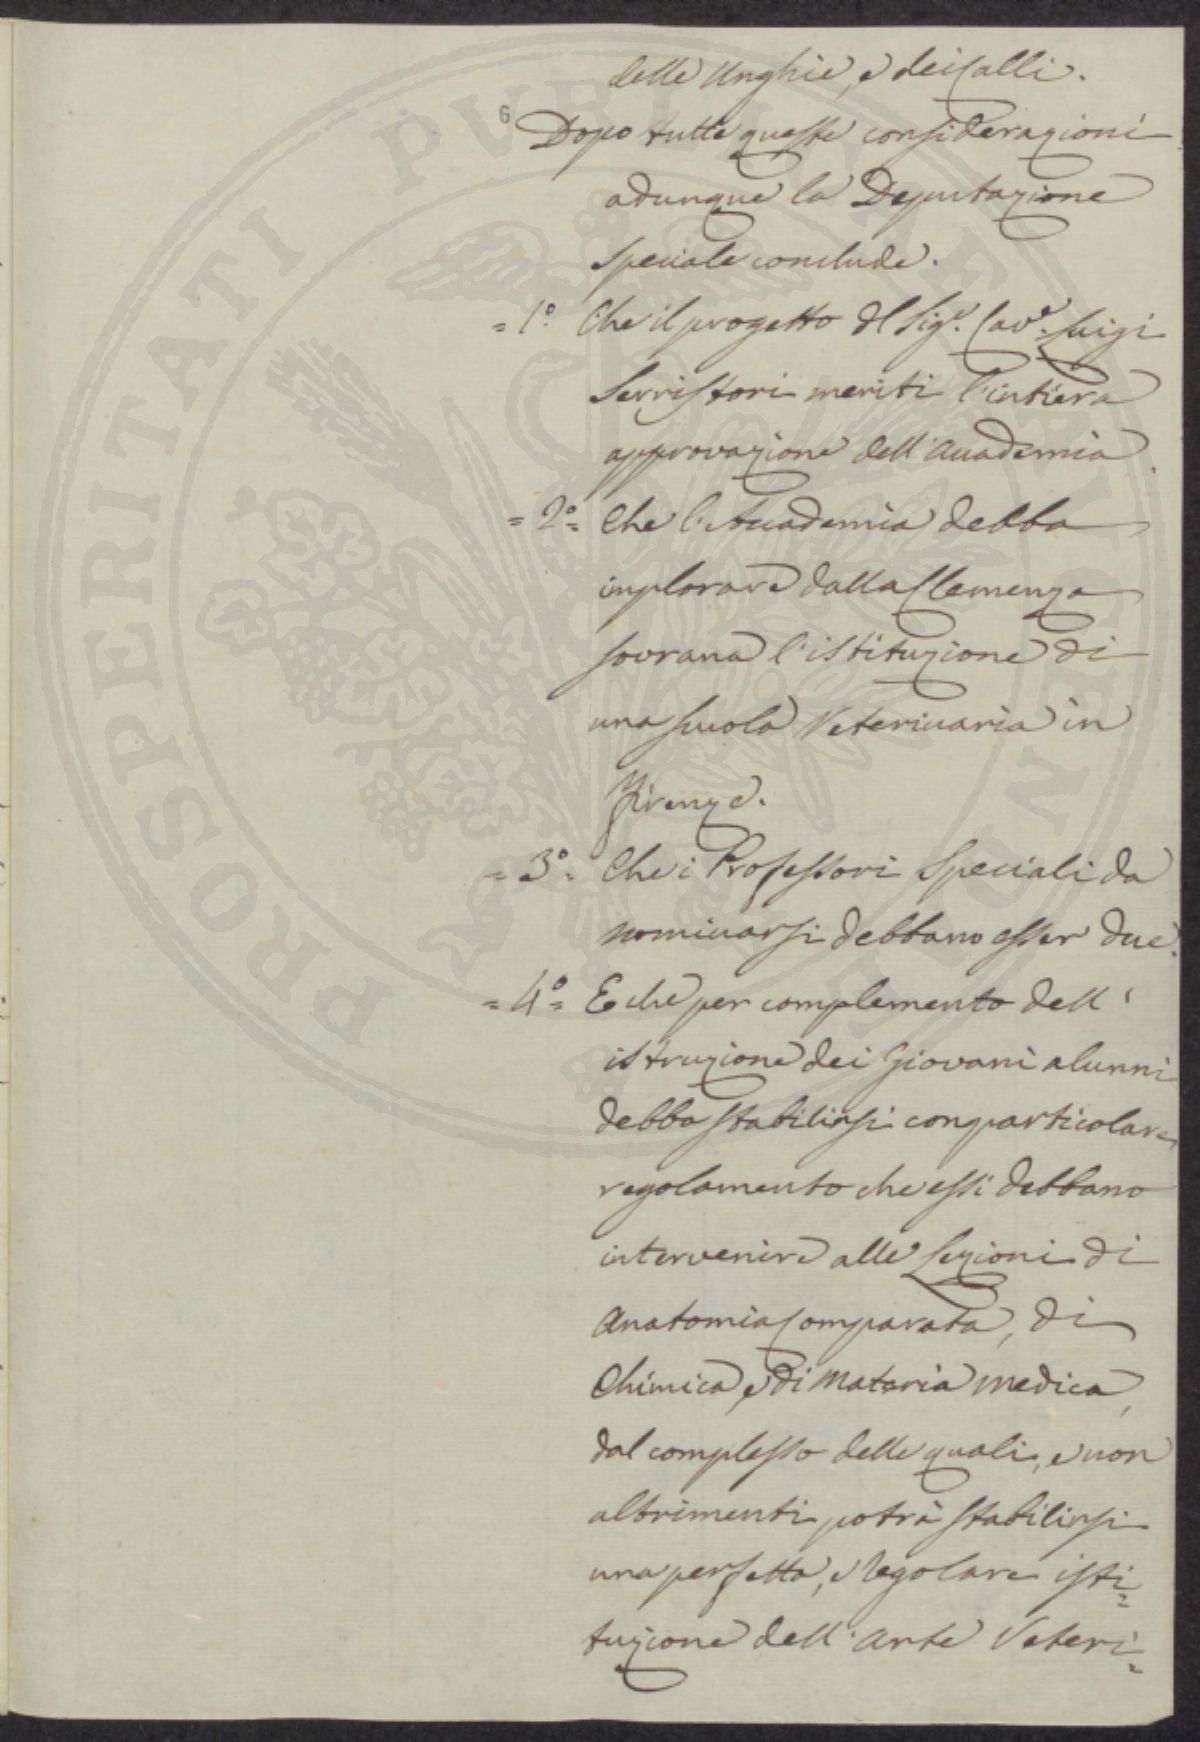 delle Unghie, e dei Calli.
6
Dopo tutte queste considerazioni
adunque la Deputazione
speciale conclude.
=1.° Che il progetto del Sig.r Cav.e Luigi
Serristori meriti l'intiera
approvazione dell'Accademia.
=2°= Che l'Accademia debba
implorare dalla Clemenza
sovrana l'istituzione di
una scuola Veterinaria in
Firenze.
=3°= Che i Professori Speciali da
nominarsi debbano esser due.
=4°= E che per complemento dell'
istruzione dei Giovani alunni
debba stabilirsi con particolare
regolamento che essi debbano
intervenire alle Lezioni di
Anatomia Comparata, di
Chimica, e di Materia medica,
dal complesso delle quali, e non
altrimenti potrà stabilirsi
una perfetta, e regolare isti=
tuzione dell'Arte Veteri=
PROSPERITATI PUBLICAE AUGENDAE